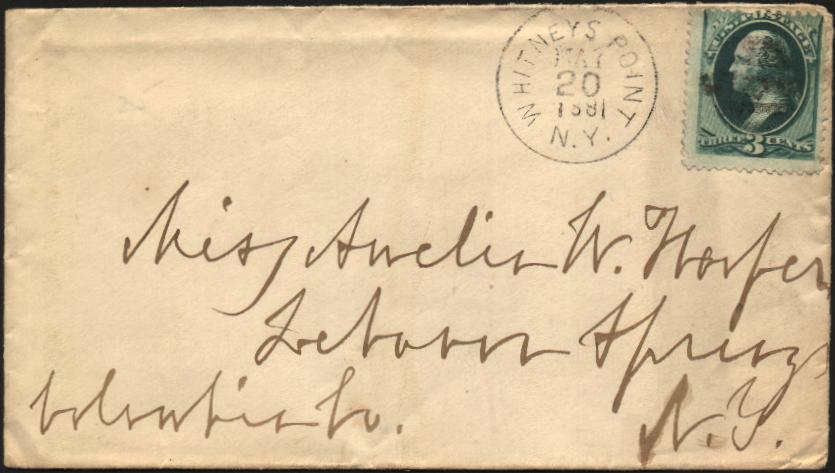 WHITNEYS POINT
MAY
20
1881
N.Y.
THREE 3 CENTS
Miss Amelia W.
Lebanon Springs
Columbia Co.
N.Y.